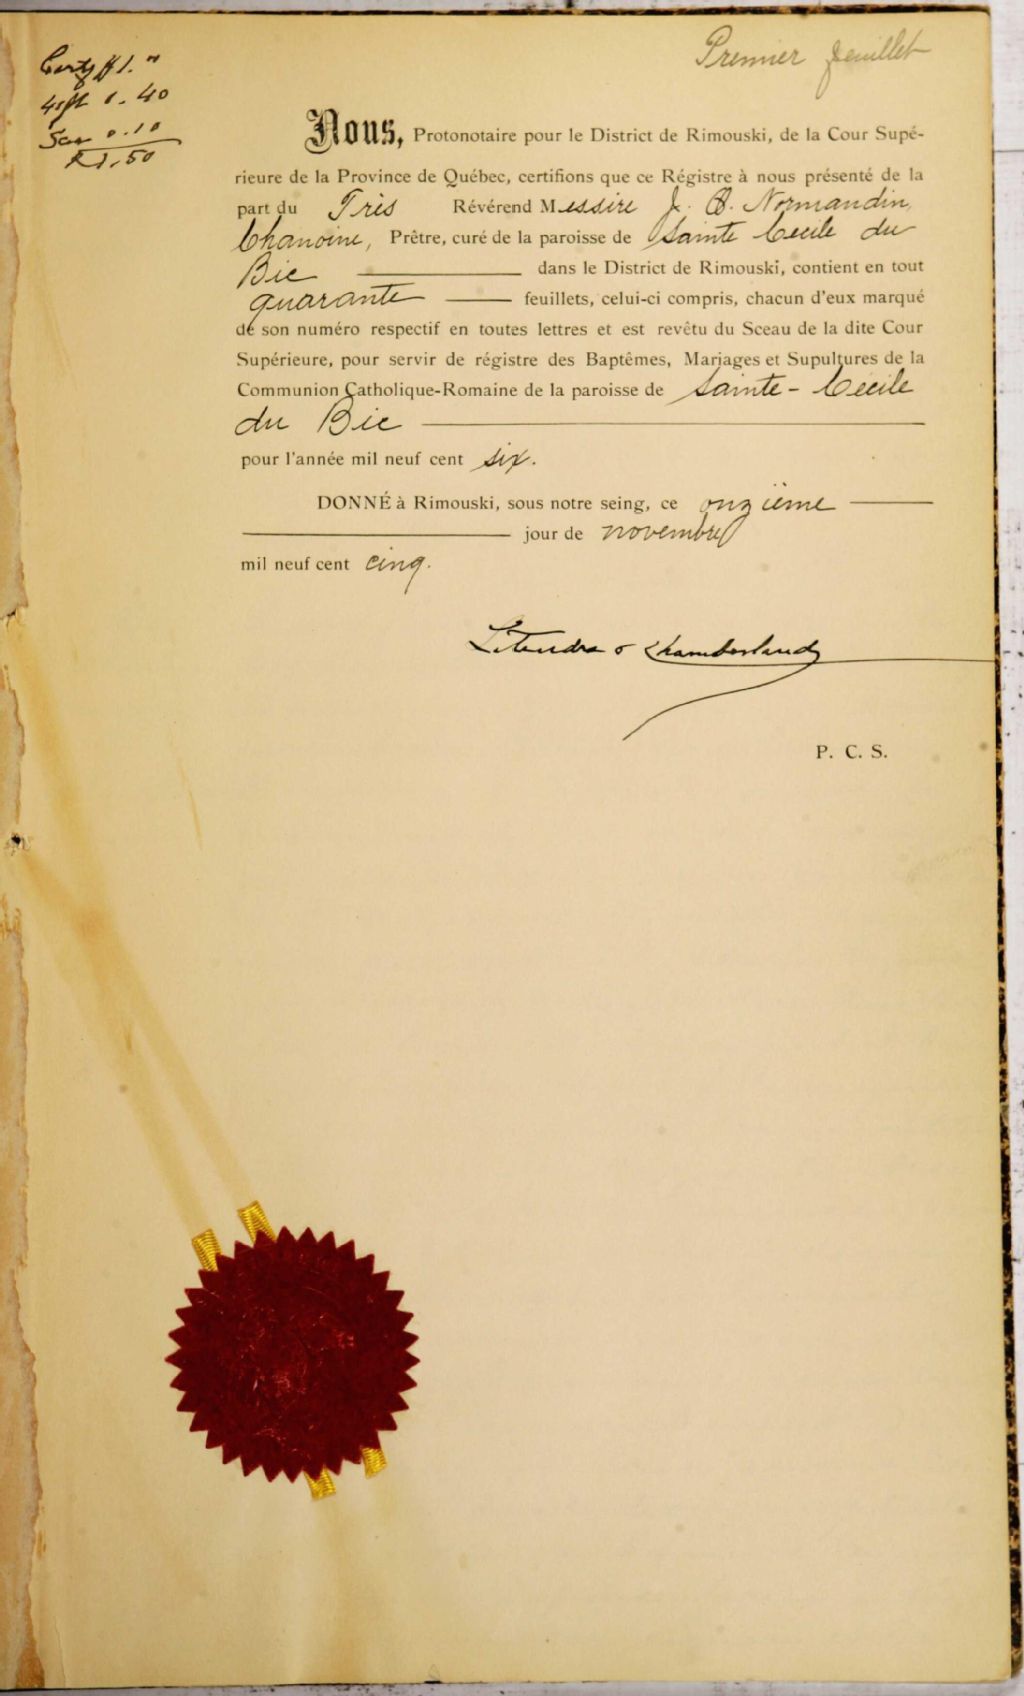 Premier feuillet
Certif $1. "
40ft 0. 40
0.10
$1.50
Nous, Protonotaire pour le District de Rimouski, de la Cour Supé-
rieure de la Province de Québec, certifions que ce Régistre à nous présenté de la
part du Très Révérend Messire J. B. Normandin,
Chanoine, Prêtre, curé de la paroisse de Sainte Cecile du
Bic dans le District de Rimouski, contient en tout
quarante feuillets, celui-ci compris, chacun d'eux marqué
de son numéro respectif en toutes lettres et est revêtu du Sceau de la dite Cour
Supérieure, pour servir de régistre des Baptêmes, Mariages et Supultures de la
Communion Catholique-Romaine de la paroisse de Sainte-Cécile
du Bic
pour l'année mil neuf cent six.
DONNÉ à Rimouski, sous notre seing, ce onzième
jour de novembre
mil neuf cent cinq.
Letendre & Chamberland
P. C. S.